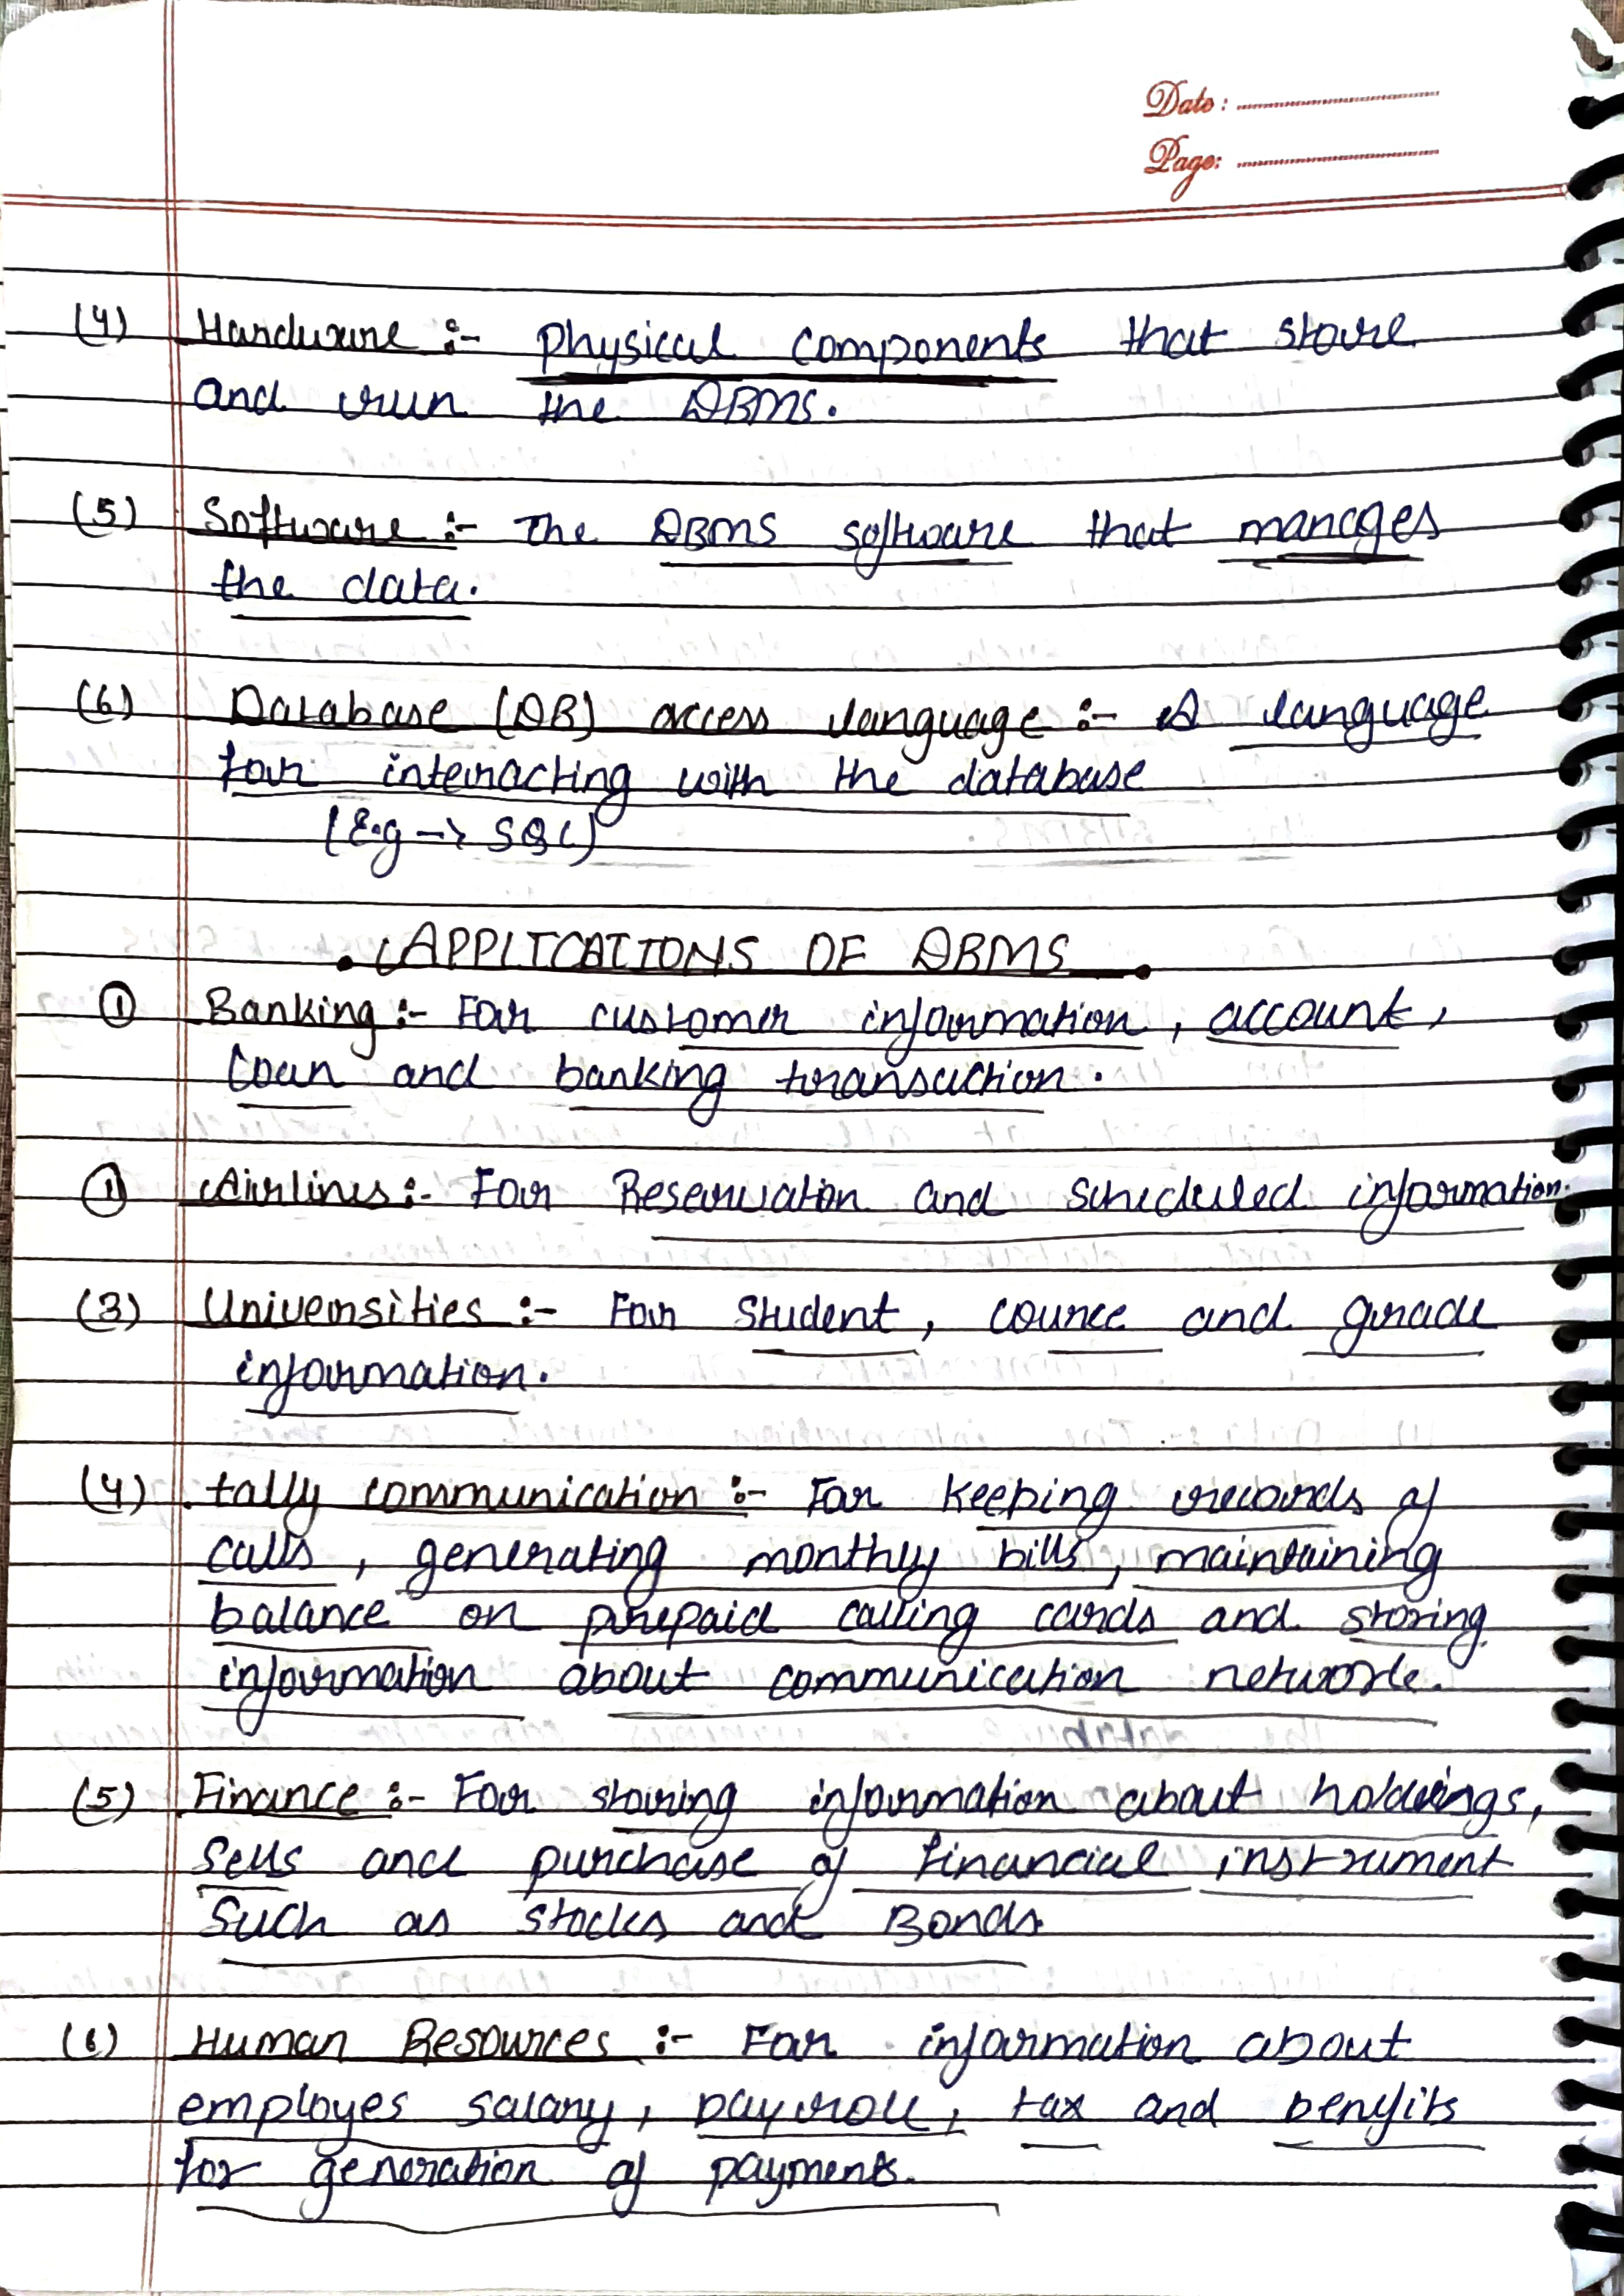 Date :
Page:
(4) Hardware :- Physical components that store
and run the DBMS.
(5) Software :- The DBMS software that manages
the data.
(6) Database (DB) access language :- A language
for interacting with the database
(E.g → SQL)
APPLICATIONS OF DBMS
① Banking :- For customer information, account,
loan and banking transaction.
① Airlines :- For Reservation and scheduled information.
(3) Universities :- For student, cource and grade
information.
(4) tally communication :- For keeping records of
calls, generating monthly bills, maintaining
balance on prepaid calling cards and storing
information about communication network.
(5) Finance :- For storing information about holdings,
sells and purchase of financial instrument
such as stocks and Bonds.
(6) Human Resources :- For information about
employes salary, payroll, tax and benefits
for generation of payments.